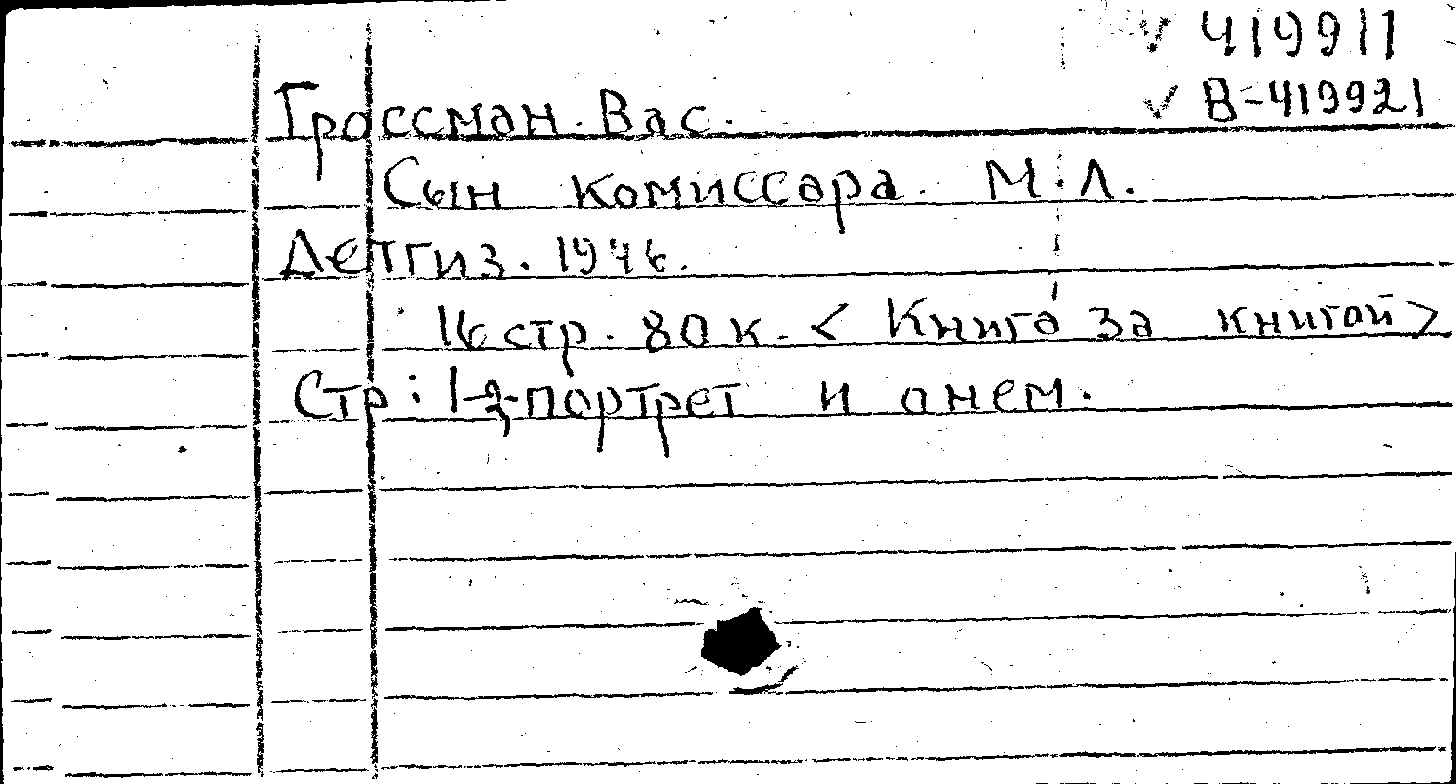 419911
В-419921
Гроссман. Вас.
Сын комиссара. М.Л.
Детгиз. 1946.
16 стр. 80 к. < Книга за книгой >
Стр: 1-2-портрет и анем.